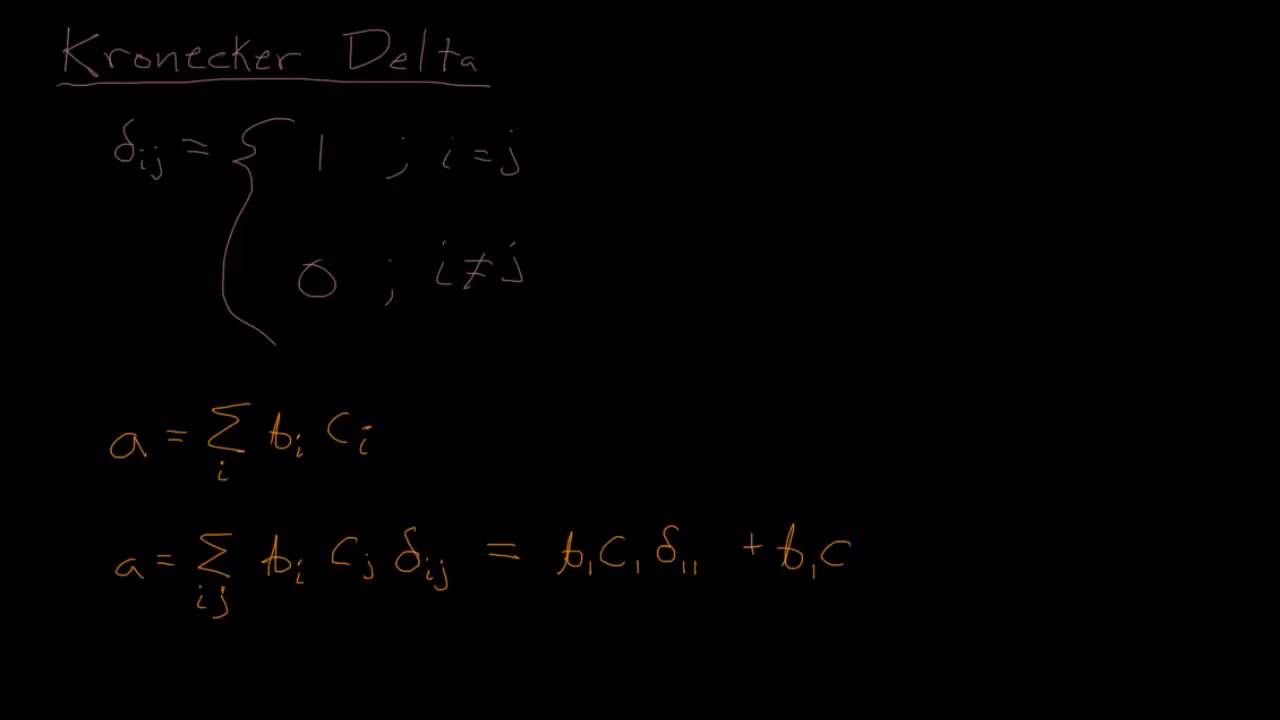 Kronecker Delta
δij = { 1 ; i = j
0 ; i ≠ j
a = Σi bi ci
a = Σij bi cj δij = b1 c1 δ11 + b1 c